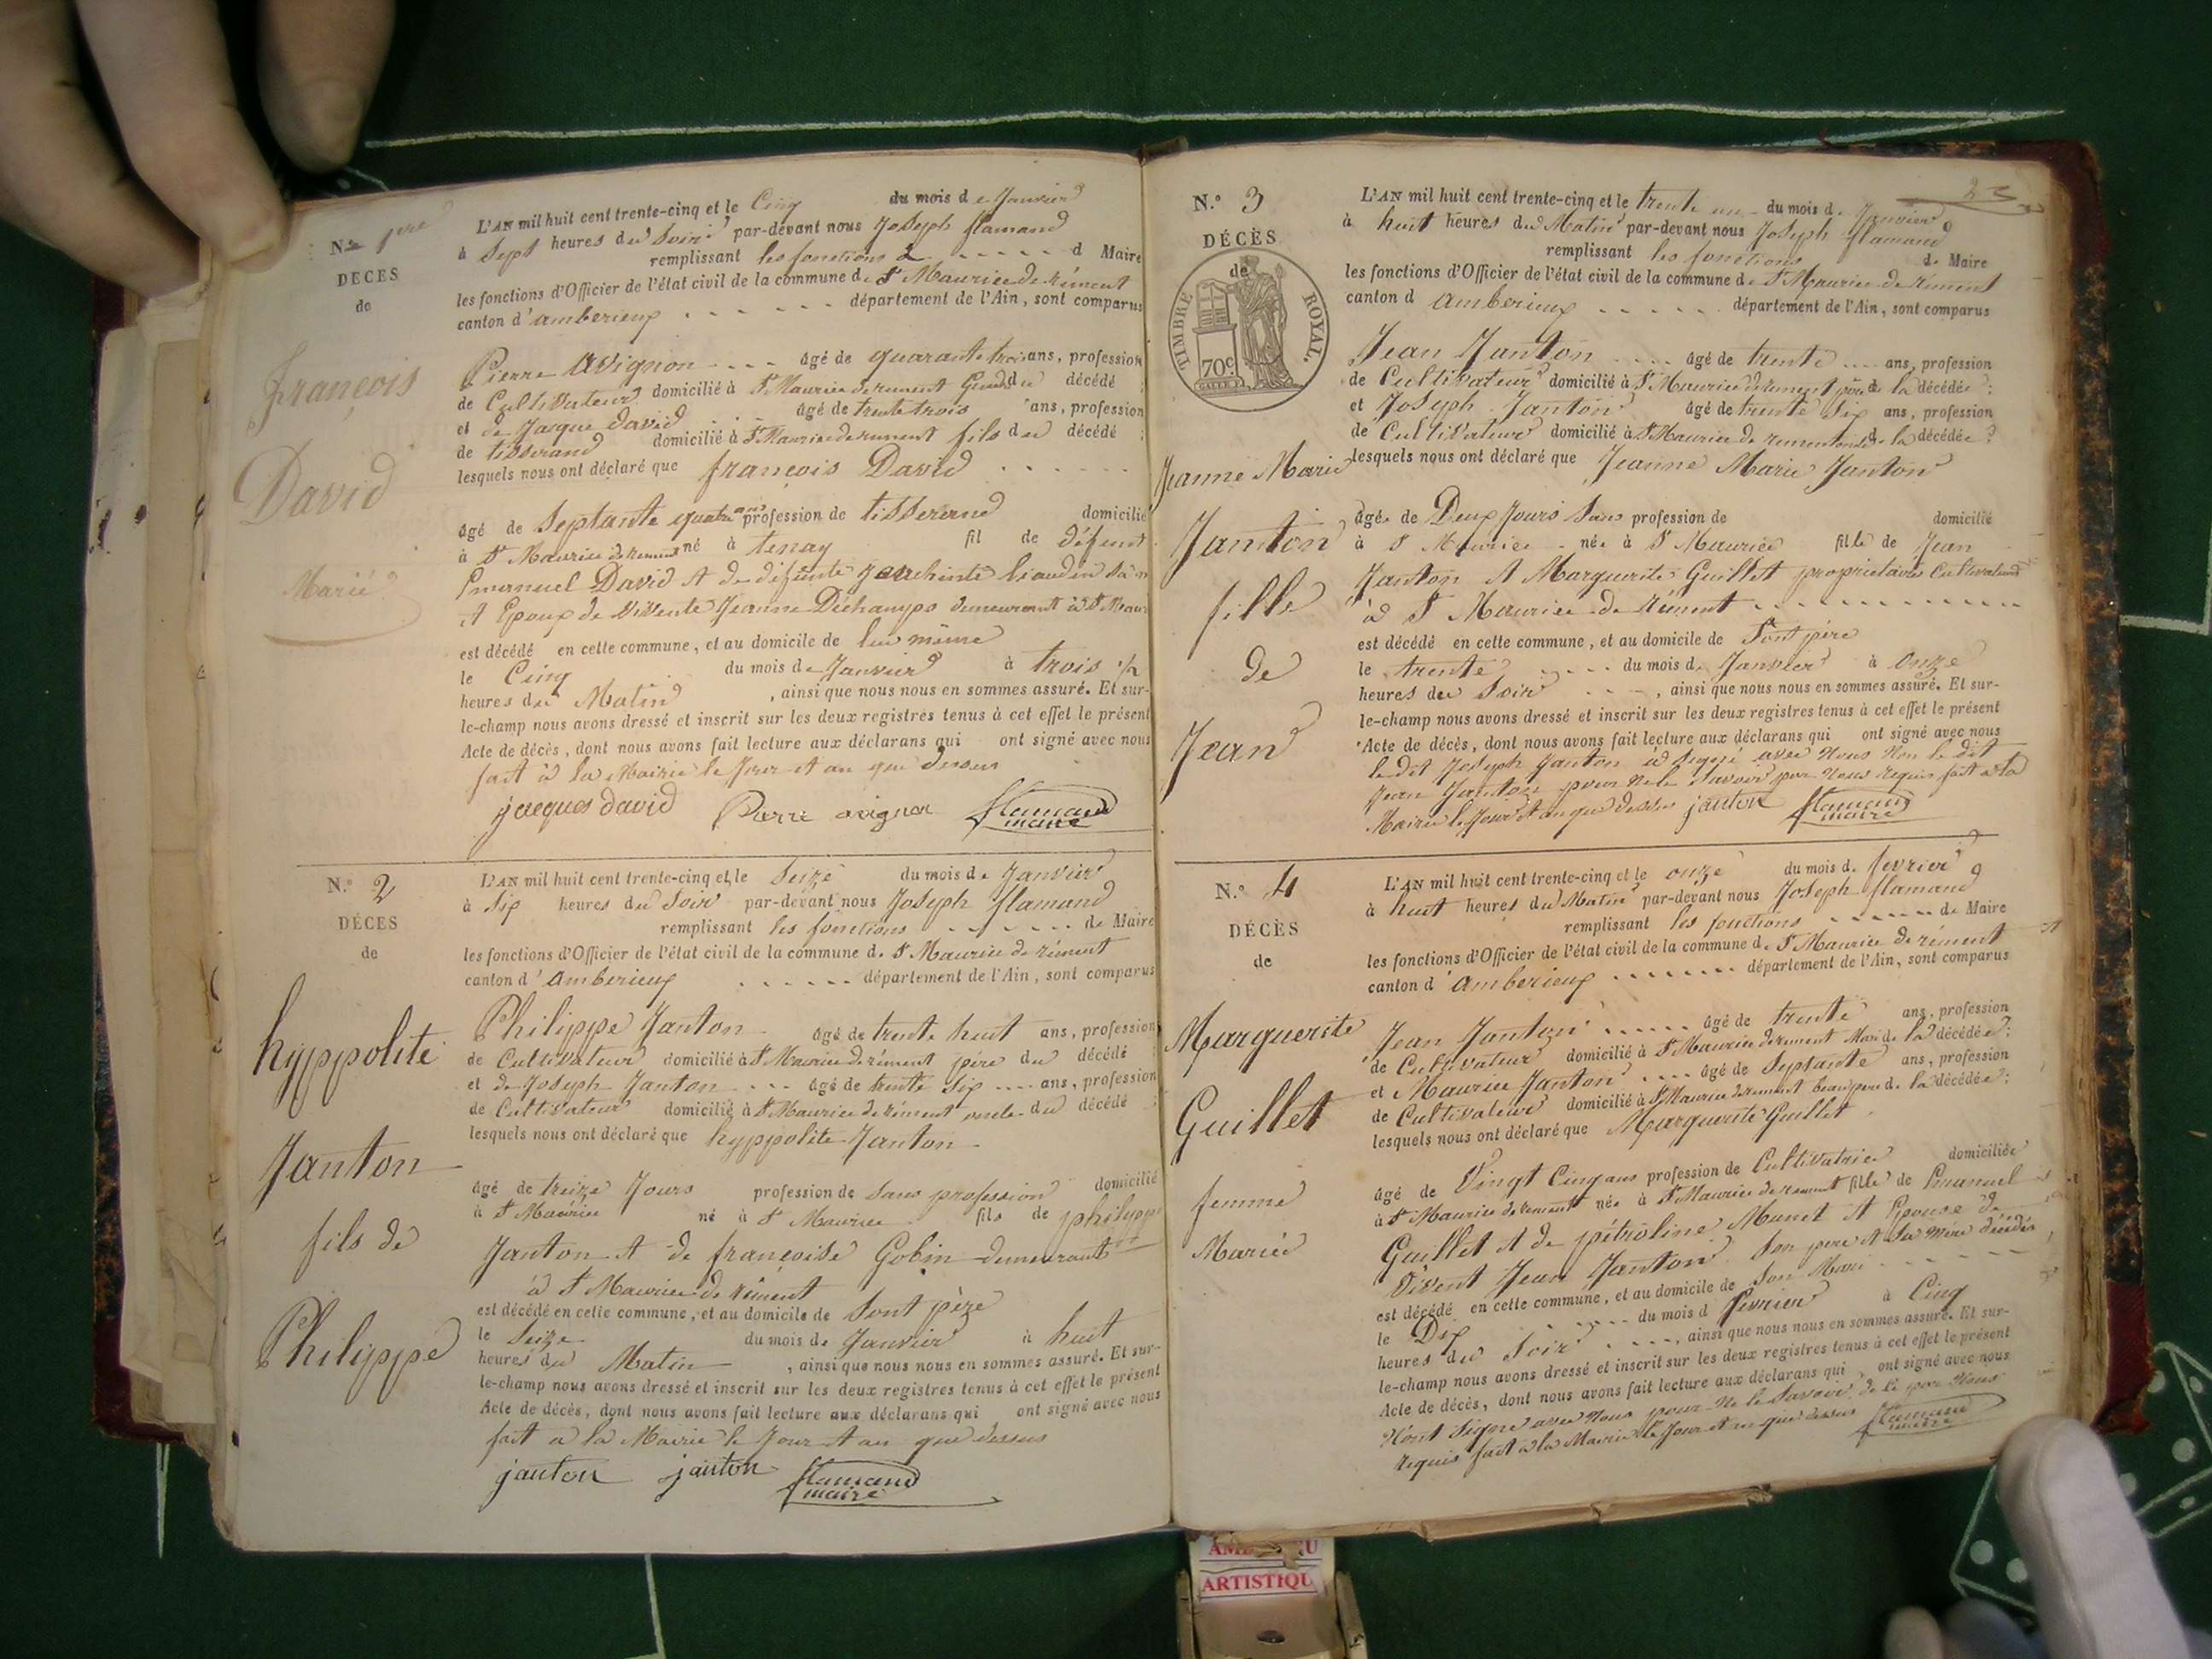 N.o 1ere
DECES
de
françois
David
Marié
L'AN mil huit cent trente-cinq et le Cinq du mois de Janvier
à Sept heures du Soir par-devant nous Joseph flamand
remplissant les fonctions d Maire
les fonctions d'Officier de l'état civil de la commune de St Maurice de rément
canton d'amberieux département de l'Ain, sont comparus
Pierre avignon âgé de quarante trois ans, profession
de Cultivateur domicilié à St Maurice de rement Gendre du décédé
et de Jacque David âgé de trente trois ans, profession
de tisserand domicilié à St Maurice de rement fils du décédé
lesquels nous ont déclaré que françois David
âgé de Septante quatre ans profession de tisserand domicilié
à St Maurice de rement né à tenay fil de défunt
Emanuel David et de défunte
et Epoux de vivente Jeanne Déchamps demeurant à St Maur
est décédé en cette commune, et au domicile de lui même
le Cinq du mois de Janvier à trois 1/2
heures du Matin, ainsi que nous nous en sommes assuré. Et sur-
le-champ nous avons dressé et inscrit sur les deux registres tenus à cet effet le présent
Acte de décès, dont nous avons fait lecture aux déclarans qui ont signé avec nous
fait à la Mairie le Jour et an que dessus
jacques david Pierre avignon flamand
maire
N.o 2
DÉCES
de
hyppolite
Janton
fils de
Philippe
L'AN mil huit cent trente-cinq et le Seize du mois de Janvier
à Six heures du Soir par-devant nous Joseph flamand
remplissant les fonctions de Maire
les fonctions d'Officier de l'état civil de la commune d. St Maurice de rément
canton d'amberieux département de l'Ain, sont comparus
Philippe Janton âgé de trente huit ans, profession
de Cultivateur domicilié à St Maurice de rément père du décédé
et de Joseph Janton âgé de trente Six ans, profession
de Cultivateur domicilié à St Maurice de rément oncle du décédé
lesquels nous ont déclaré que hyppolite Janton
âgé de treize Jours profession de Sans profession domicilié
à St Maurice né à St Maurice fils de philippe
Janton et de françoise Gobin demeurant
à St Maurice de rément
est décédé en cette commune, et au domicile de Sont père
le Seize du mois de Janvier à huit
heures du Matin, ainsi que nous nous en sommes assuré. Et sur-
le-champ nous avons dressé et inscrit sur les deux registres tenus à cet effet le présent
Acte de décès, dont nous avons fait lecture aux déclarans qui ont signé avec nous
fait à la Mairie le Jour et an que dessus
janton janton flamand
maire
23
N.o 3
DÉCÈS
de
TIMBRE ROYAL.
70c
Jeanne Marie
Janton
fille
de
Jean
L'AN mil huit cent trente-cinq et le trente un du mois d. Janvier
à huit heures du Matin par-devant nous Joseph flamand
remplissant les fonctions de Maire
les fonctions d'Officier de l'état civil de la commune de St Maurice de rément
canton d amberieux département de l'Ain, sont comparus
Jean Janton âgé de trente ans, profession
de Cultivateur domicilié à St Maurice de rement père de la décédée:
et Joseph Janton âgé de trente Six ans, profession
de Cultivateur domicilié à St Maurice de rement oncle de la décédée:
lesquels nous ont déclaré que Jeanne Marie Janton
âgée de Deux Jours Sans profession de domicilié
à St Maurice née à St Maurice fille de Jean
Janton et Marguerite Guillet propriétaires Cultivateurs
à St Maurice de rément
est décédé en cette commune, et au domicile de Sont père
le trente du mois d. Janvier à onze
heures du Soir, ainsi que nous nous en sommes assuré. Et sur-
le-champ nous avons dressé et inscrit sur les deux registres tenus à cet effet le présent
Acte de décès, dont nous avons fait lecture aux déclarans qui ont signé avec nous
le dit Joseph Janton à signé avec nous Non le dit
Jean Janton pour ne le Savoir par nous requis fait à la
Mairie le Jour et an que dessus janton flamand
maire
N.o 4
DÉCÈS
de
Marguerite
Guillet
femme
Mariée
L'AN mil huit cent trente-cinq et le onze du mois d. fevrier
à huit heures du Matin par-devant nous Joseph flamand
remplissant les fonctions de Maire
les fonctions d'Officier de l'état civil de la commune d. St Maurice de rément
canton d'amberieux département de l'Ain, sont comparus
Jean Janton âgé de trente ans, profession
de Cultivateur domicilié à St Maurice de rement Mari de la décédée:
et Maurice Janton âgé de Septante ans, profession
de Cultivateur domicilié à St Maurice de rement beau pere de la décédée:
lesquels nous ont déclaré que Marguerite Guillet
âgé de Vingt Cinq ans profession de Cultivatrice domiciliée
à St Maurice de rement née à St Maurice de rement fille de Emanuel
Guillet et de pétroline Munet et Epouse de
Vivent Jean Janton Son pere et Sa mère décédés
est décédé en cette commune, et au domicile de Son Mari
le Dix du mois d fevrier à Cinq
heures du Soir, ainsi que nous nous en sommes assuré. Et sur-
le-champ nous avons dressé et inscrit sur les deux registres tenus à cet effet le présent
Acte de décès, dont nous avons fait lecture aux déclarans qui ont signé avec nous
N'ont Signé avec nous pour ne le Savoir de ce par Nous
requis fait à la Mairie le Jour et an que dessus flamand
maire
ARTISTIQU